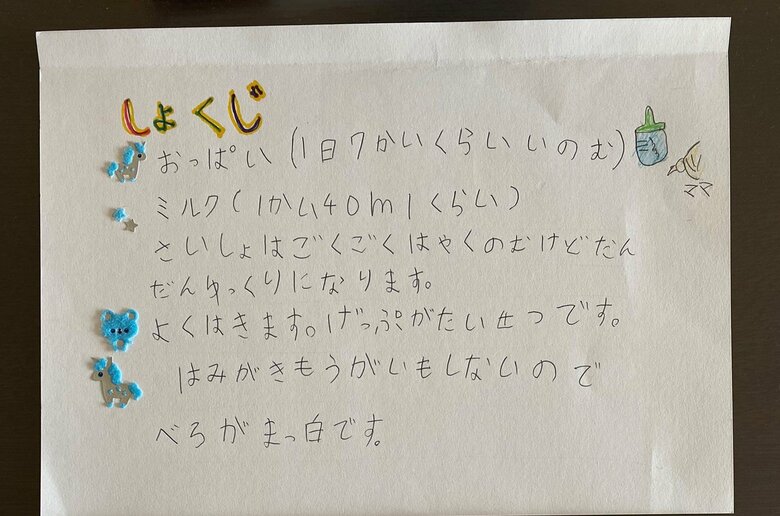 しょくじ
おっぱい(1日7かいくらいいのむ)
ママ
ミルク(1かい40mlくらい)
さいしょはごくごくはやくのむけどだん
だんゆっくりになります。
よくはきます。げっぷがたいせつです。
はみがきもうがいもしないので
べろがまっ白です。